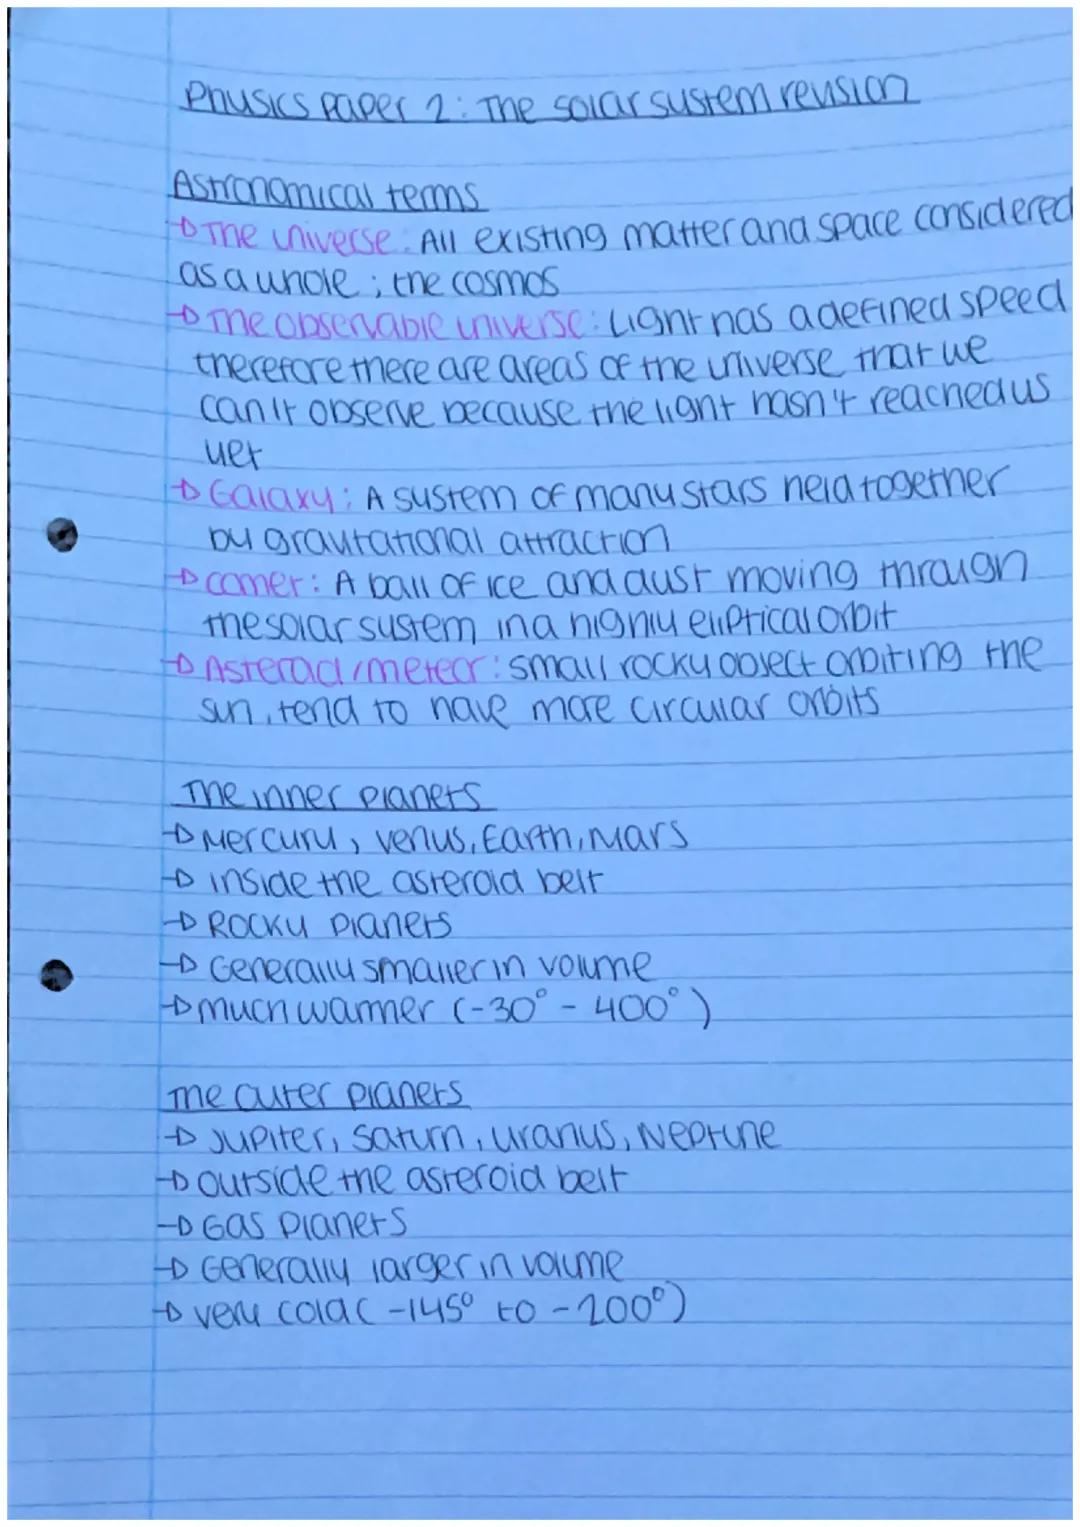 Physics paper 2: The solar system revision
Astronomical terms
→ The universe: All existing matter and space considered
as a whole; the cosmos
→ The observable universe: Light has a defined speed
therefore there are areas of the universe that we
can't observe because the light hasn't reached us
yet
→ Galaxy: A system of many stars held together
by gravitational attraction
→ comet: A ball of ice and dust moving through
the solar system in a highly elliptical orbit
→ Asteroid/meteor: small rocky object orbiting the
sun, tend to have more circular orbits
The inner planets
→ Mercury, Venus, Earth, Mars
→ inside the asteroid belt
→ Rocky planets
→ Generally smaller in volume
→ much warmer (-30° - 400°)
The outer planets
→ Jupiter, Saturn, Uranus, Neptune
→ outside the asteroid belt
→ Gas planets
→ Generally larger in volume
→ very cold (-145° to -200°)